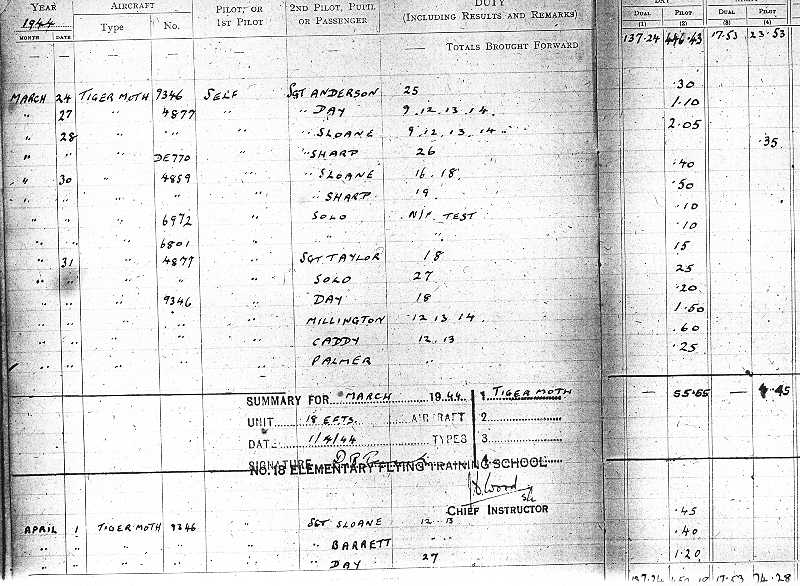 YEAR AIRCRAFT PILOT, OR 2ND PILOT, PUPIL DUTY DAY
1944 Type No. 1ST PILOT OR PASSENGER (INCLUDING RESULTS AND REMARKS) DUAL PILOT DUAL PILOT
MONTH DATE (1) (2) (3) (4)
— — — TOTALS BROUGHT FORWARD 137.24 446.43 17.53 23.53
MARCH 24 TIGER MOTH 9346 SELF SGT ANDERSON 25 .30
" 27 " " 4877 " " DAY 9.12.13.14. 1.10
" 28 " " " " " SLOANE 9.12.13.14. 2.05
" " DE770 " " SHARP 26 .35
" 30 " " 4859 " " SLOANE 16.18. .40
" " " " " SHARP 19. .50
" " " 6972 " SOLO N/F. TEST .10
" " " 6801 " " " .10
" 31 " 4877 " SGT TAYLOR 18 15
" " " " SOLO 27 25
" " " 9346 " DAY 18 .20
" " " " MILLINGTON 12.13.14. 1.50
" " " " CADDY 12.13 .60
" " " " PALMER " .25
SUMMARY FOR MARCH 1944 1 TIGER MOTH — 55.55 — 4.45
UNIT 18 EFTS. AIRCRAFT 2
DATE 1/4/44 TYPES 3
SIGNATURE 4
NO. 18 ELEMENTARY FLYING TRAINING SCHOOL
Wood
CHIEF INSTRUCTOR
APRIL 1 TIGER MOTH 9346 " SGT SLOANE 12.13 .45
" " " " " BARRETT " " .40
" " " " " DAY 27 1.20
137.24 17.53 74.28